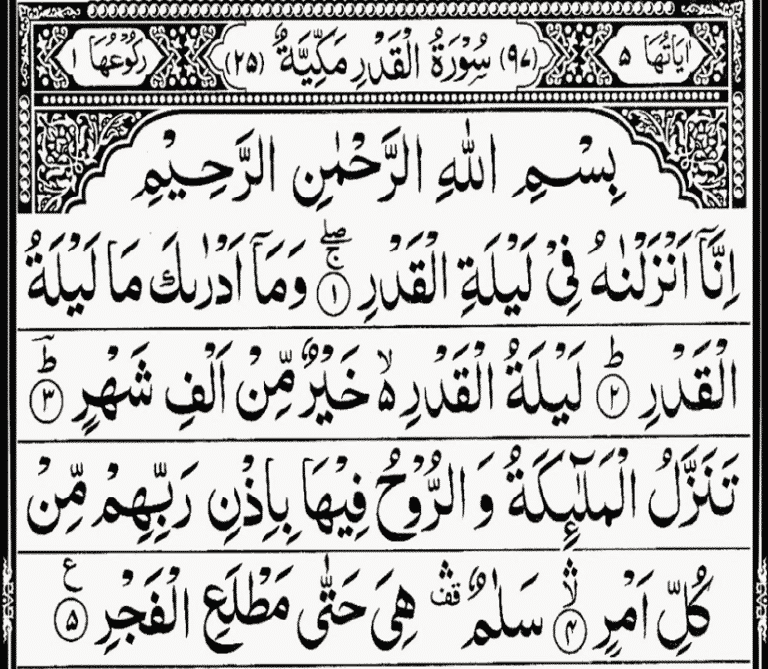 اٰیَاتُهَا ۵ (۹۷) سُوْرَةُ الْقَدْرِ مَكِّیَّةٌ (۲۵) رُكُوْعُهَا ۱
بِسْمِ اللّٰهِ الرَّحْمٰنِ الرَّحِیْمِ
اِنَّاۤ اَنْزَلْنٰهُ فِیْ لَیْلَةِ الْقَدْرِ ۚۖ ۱ وَمَاۤ اَدْرٰىكَ مَا لَیْلَةُ
الْقَدْرِ ؕ ۲ لَیْلَةُ الْقَدْرِ ۙ۵ خَیْرٌ مِّنْ اَلْفِ شَهْرٍ ؕ ۳
تَنَزَّلُ الْمَلٰٓىِٕكَةُ وَ الرُّوْحُ فِیْهَا بِاِذْنِ رَبِّهِمْ مِّنْ
كُلِّ اَمْرٍ ۙ ۴ سَلٰمٌ قف هِیَ حَتّٰى مَطْلَعِ الْفَجْرِ ۵ ع